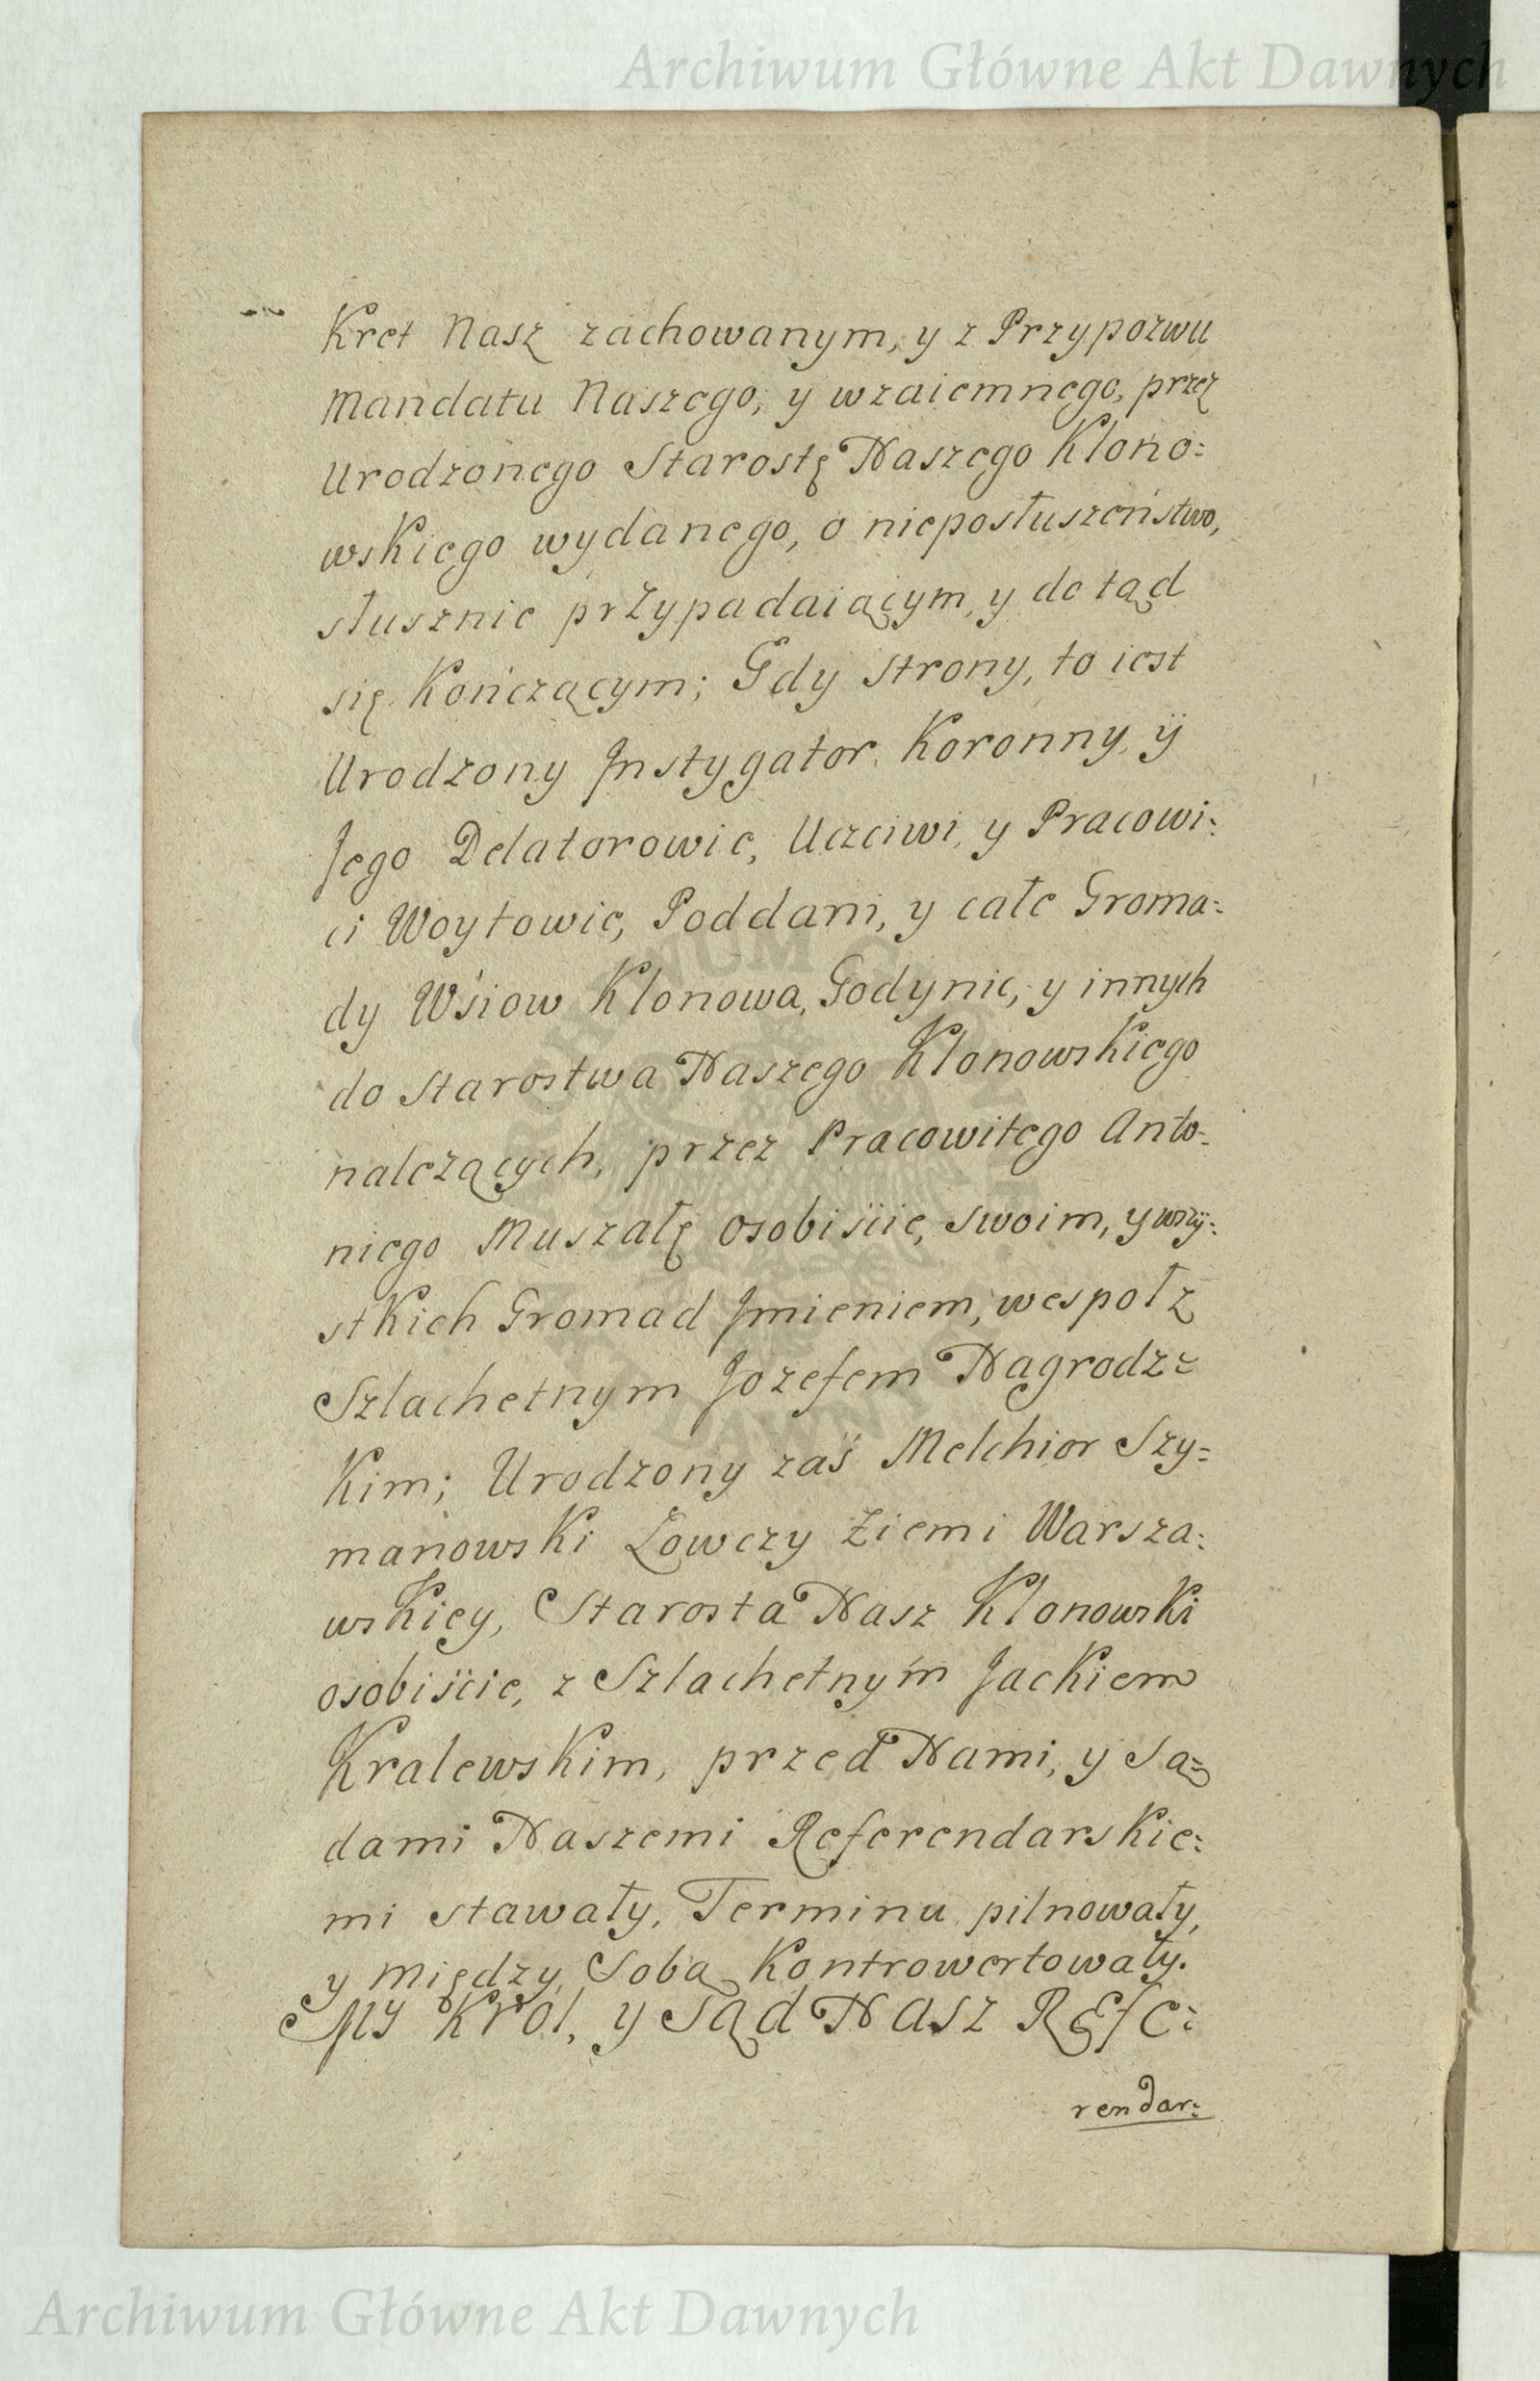 Archiwum Główne Akt Dawnych
Kret Nasz zachowanym, y z Przypozwu
Mandatu Naszego, y wzaiemnego, przez
Urodzonego Starostę Naszego Klono:
wskiego wydanego, o nieposłuszeństwo,
słusznie przypadaiącym, y do tąd
się Kończącym; Gdy Strony, to iest
Urodzony Jnstygator Koronny, ÿ
Jego Delatorowie, Uczciwi, y Pracowi:
ci Woytowie, Poddani, y całe Groma:
dy Wsiow Klonowa, Godynic, y innych
do Starostwa Naszego Klonowskiego
należących, przez Pracowitego Anto:
niego Muszałę osobiście, swoim, y wszÿ:
stkich Gromad Jmieniem, wespoł z
Szlachetnym Jozefem Nagrodz:
Kim; Urodzony zaś Melchior Szy:
manowski Łowczy Ziemi Warsza:
wskiey, Starosta Nasz Klonowski
osobiście, z Szlachetnym Jackiem
Kralewskim, przed Nami, y Są:
dami Naszemi Referendarskie:
mi stawały, Terminu pilnowały,
y między Sobą Kontrowertowały.
My Krol, y Sąd Nasz Refe:
rendar:
Archiwum Główne Akt Dawnych